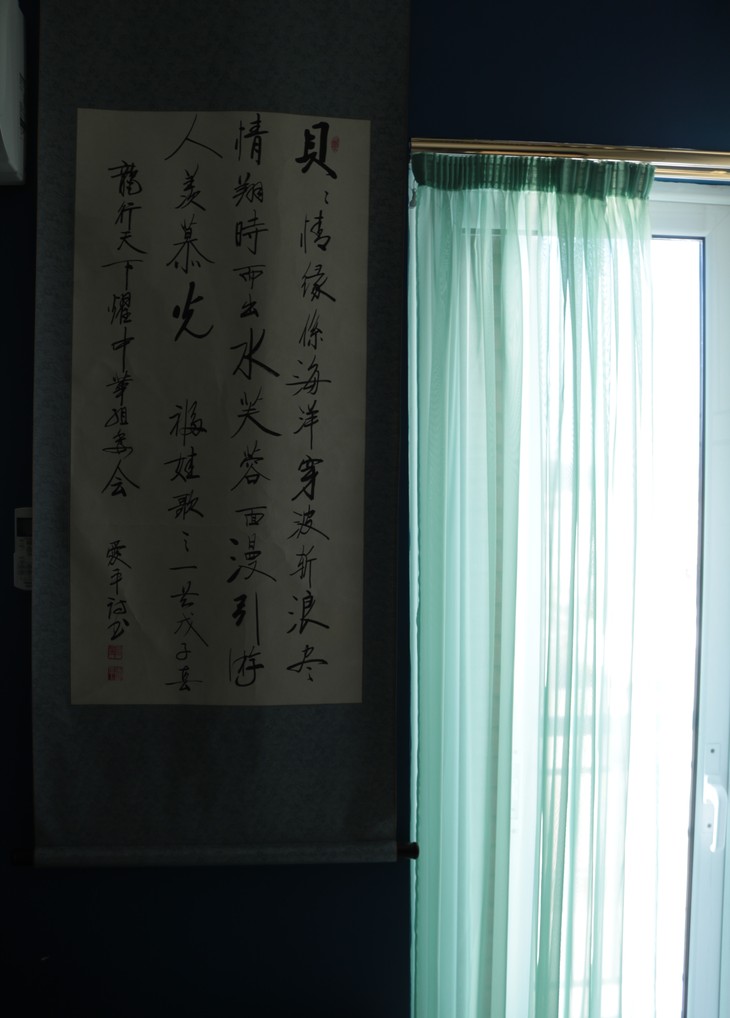 貝〻情缘係海洋穿波斩浪尽
情翔時而出水芙蓉面漫引游
人羡慕光 福娃歌〻一 戊子喜
龍行天下耀中華组委会 爱平詩书